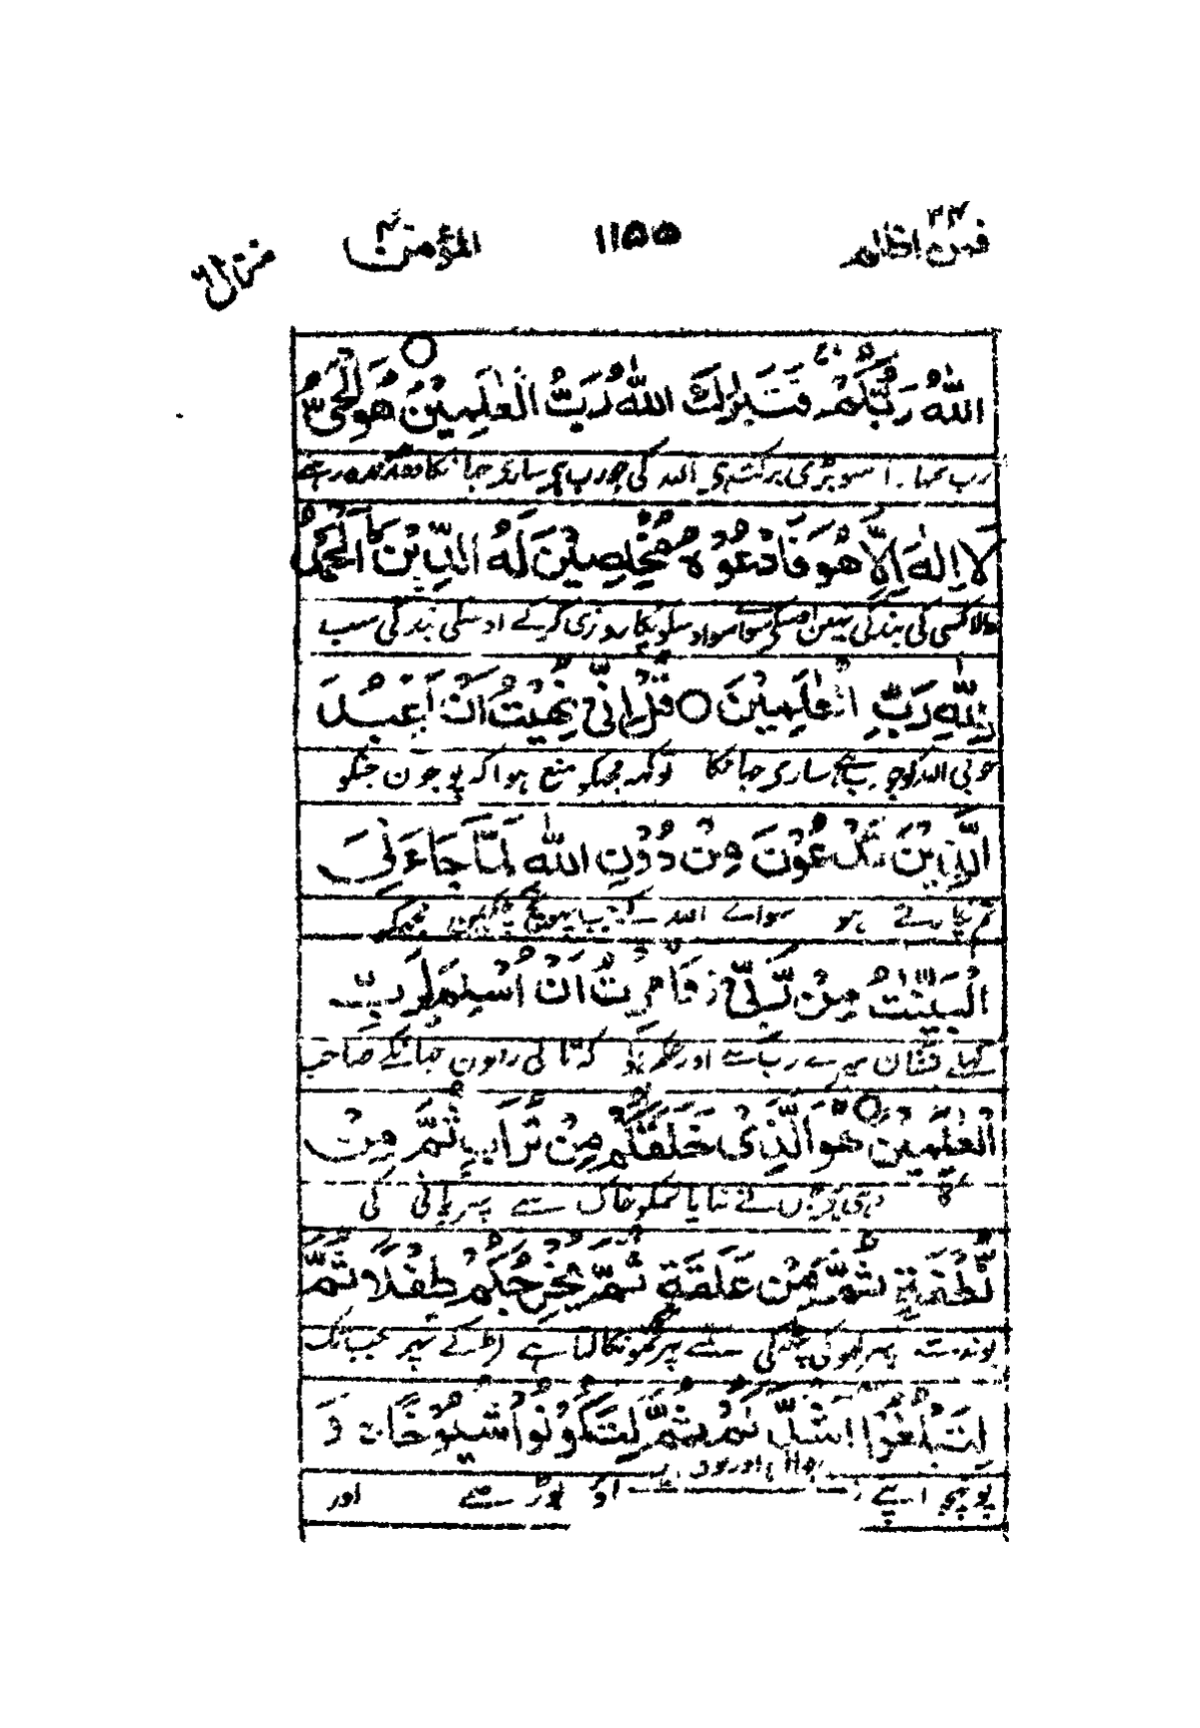 فمن اظلم ۲۴ ۱۱۵۵ المؤمن ۴۰ منزل ۶
اللّٰهُ رَبُّكُمْ فَتَبٰرَكَ اللّٰهُ رَبُّ الْعٰلَمِيْنَ ○ هُوَ الْحَىُّ
رب تمہارا سو بڑی برکت ہی اللہ کی جو رب ہی ساری جہانکا وہ زندہ رہنے
لَا اِلٰهَ اِلَّا هُوَ فَادْعُوْهُ مُخْلِصِيْنَ لَهُ الدِّيْنَ اَلْحَمْدُ
والا کسی کی بندگی نہین اوسکی سوا سو اوسکو پکارو نری کر کے اوسکی بندگی سب
لِلّٰهِ رَبِّ الْعٰلَمِيْنَ ○ قُلْ اِنِّىْ نُهِيْتُ اَنْ اَعْبُدَ
خوبی اللہ کو جو رب ہے ساری جہانکا تو کہہ مجھکو منع ہوا کہ پوجون جنکو
الَّذِيْنَ تَدْعُوْنَ مِنْ دُوْنِ اللّٰهِ لَمَّا جَآءَنِىَ
تم پکارتے ہو سوائے اللہ کے جب پہونچ چکین مجھکو
الْبَيِّنٰتُ مِنْ رَّبِّىْ ز وَاُمِرْتُ اَنْ اُسْلِمَ لِرَبِّ
کھلے نشان میرے رب سے اور حکم ہوا کہ تابع رہون جہانکے صاحب
الْعٰلَمِيْنَ ○ هُوَ الَّذِىْ خَلَقَكُمْ مِنْ تُرَابٍ ثُمَّ مِنْ
کا وہی ہے جس نے بنایا تمکو خاک سے پہر پانی کی
نُّطْفَةٍ ثُمَّ مِنْ عَلَقَةٍ ثُمَّ يُخْرِجُكُمْ طِفْلًا ثُمَّ
بوند سے پہر لہو کی پھٹکی سے پہر تمکو نکالتا ہے لڑکے پہر جب تک
لِتَبْلُغُوْا اَشُدَّكُمْ ثُمَّ لِتَكُوْنُوْا شُيُوْخًا ج وَ
پہونچو اپنے اور